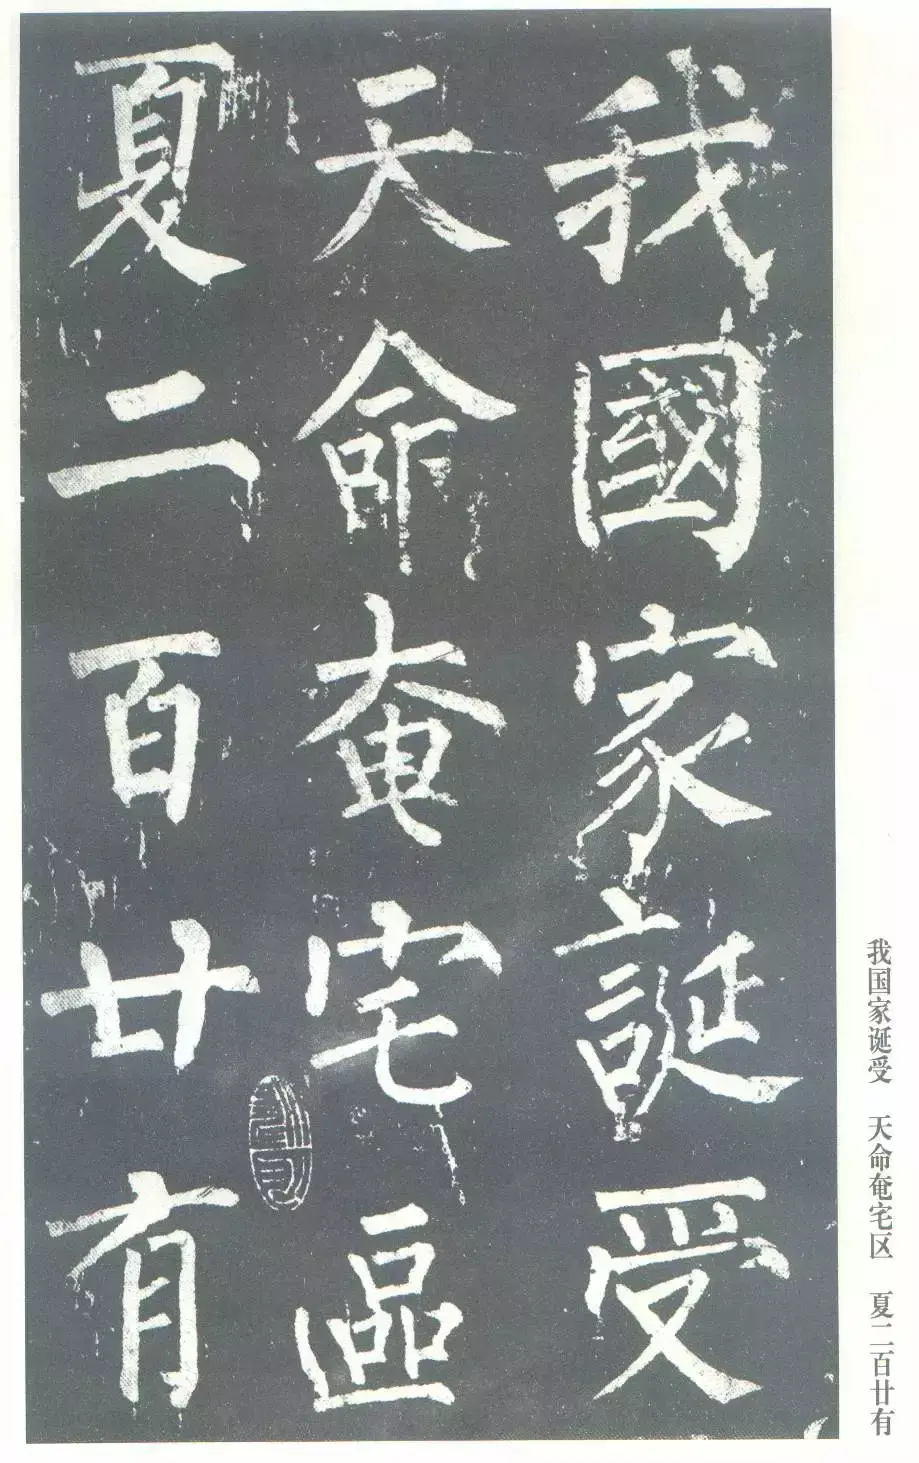 我國家誕受
天命奄宅區
夏二百廿有
我国家诞受　天命奄宅区　夏二百廿有